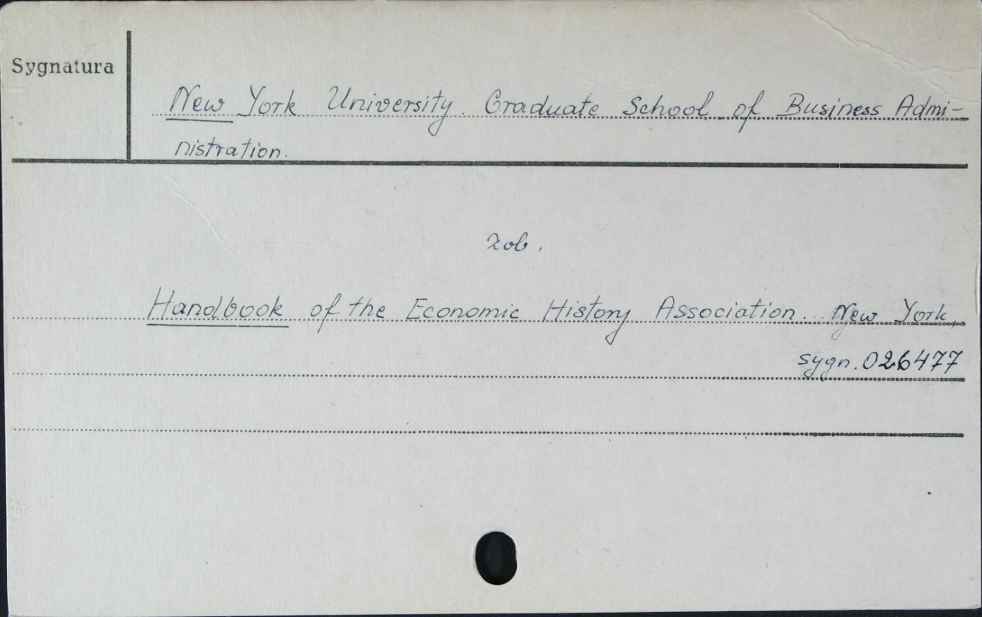 Sygnatura
New York University. Graduate School of Business Admi-
nistration.
zob.
Handbook of the Economic History Association. New York,
sygn. 026477